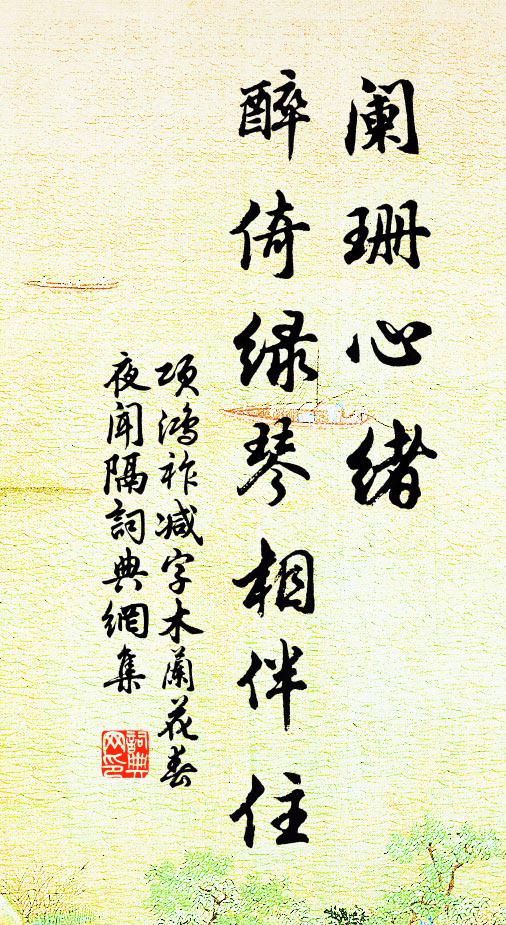 阑珊心绪
醉倚绿琴相伴住
项鸿祚减字木蘭花春
夜闻隔詞典網集
詞典
网印